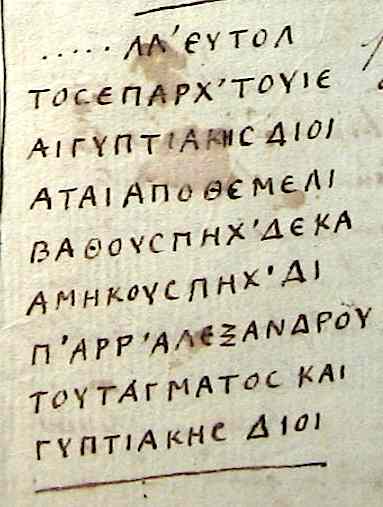 ..... ΛΛ’ΕΥΤΟΛ
ΤΟϹΕΠΑΡΧ’ΤΟΥΙΕ
ΑΙΓΥΠΤΙΑΚΗϹ ΔΙΟΙ
ΑΤΑΙ ΑΠΟ ΘΕΜΕΛΙ
ΒΑΘΟΥϹ ΠΗΧ’ΔΕΚΑ
ΑΜΗΚΟΥϹ ΠΗΧ’ΔΙ
Π’ΑΡΡ’ΑΛΕΞΑΝΔΡΟΥ
ΤΟΥΤΑΓΜΑΤΟϹ ΚΑΙ
ΓΥΠΤΙΑΚΗϹ ΔΙΟΙ